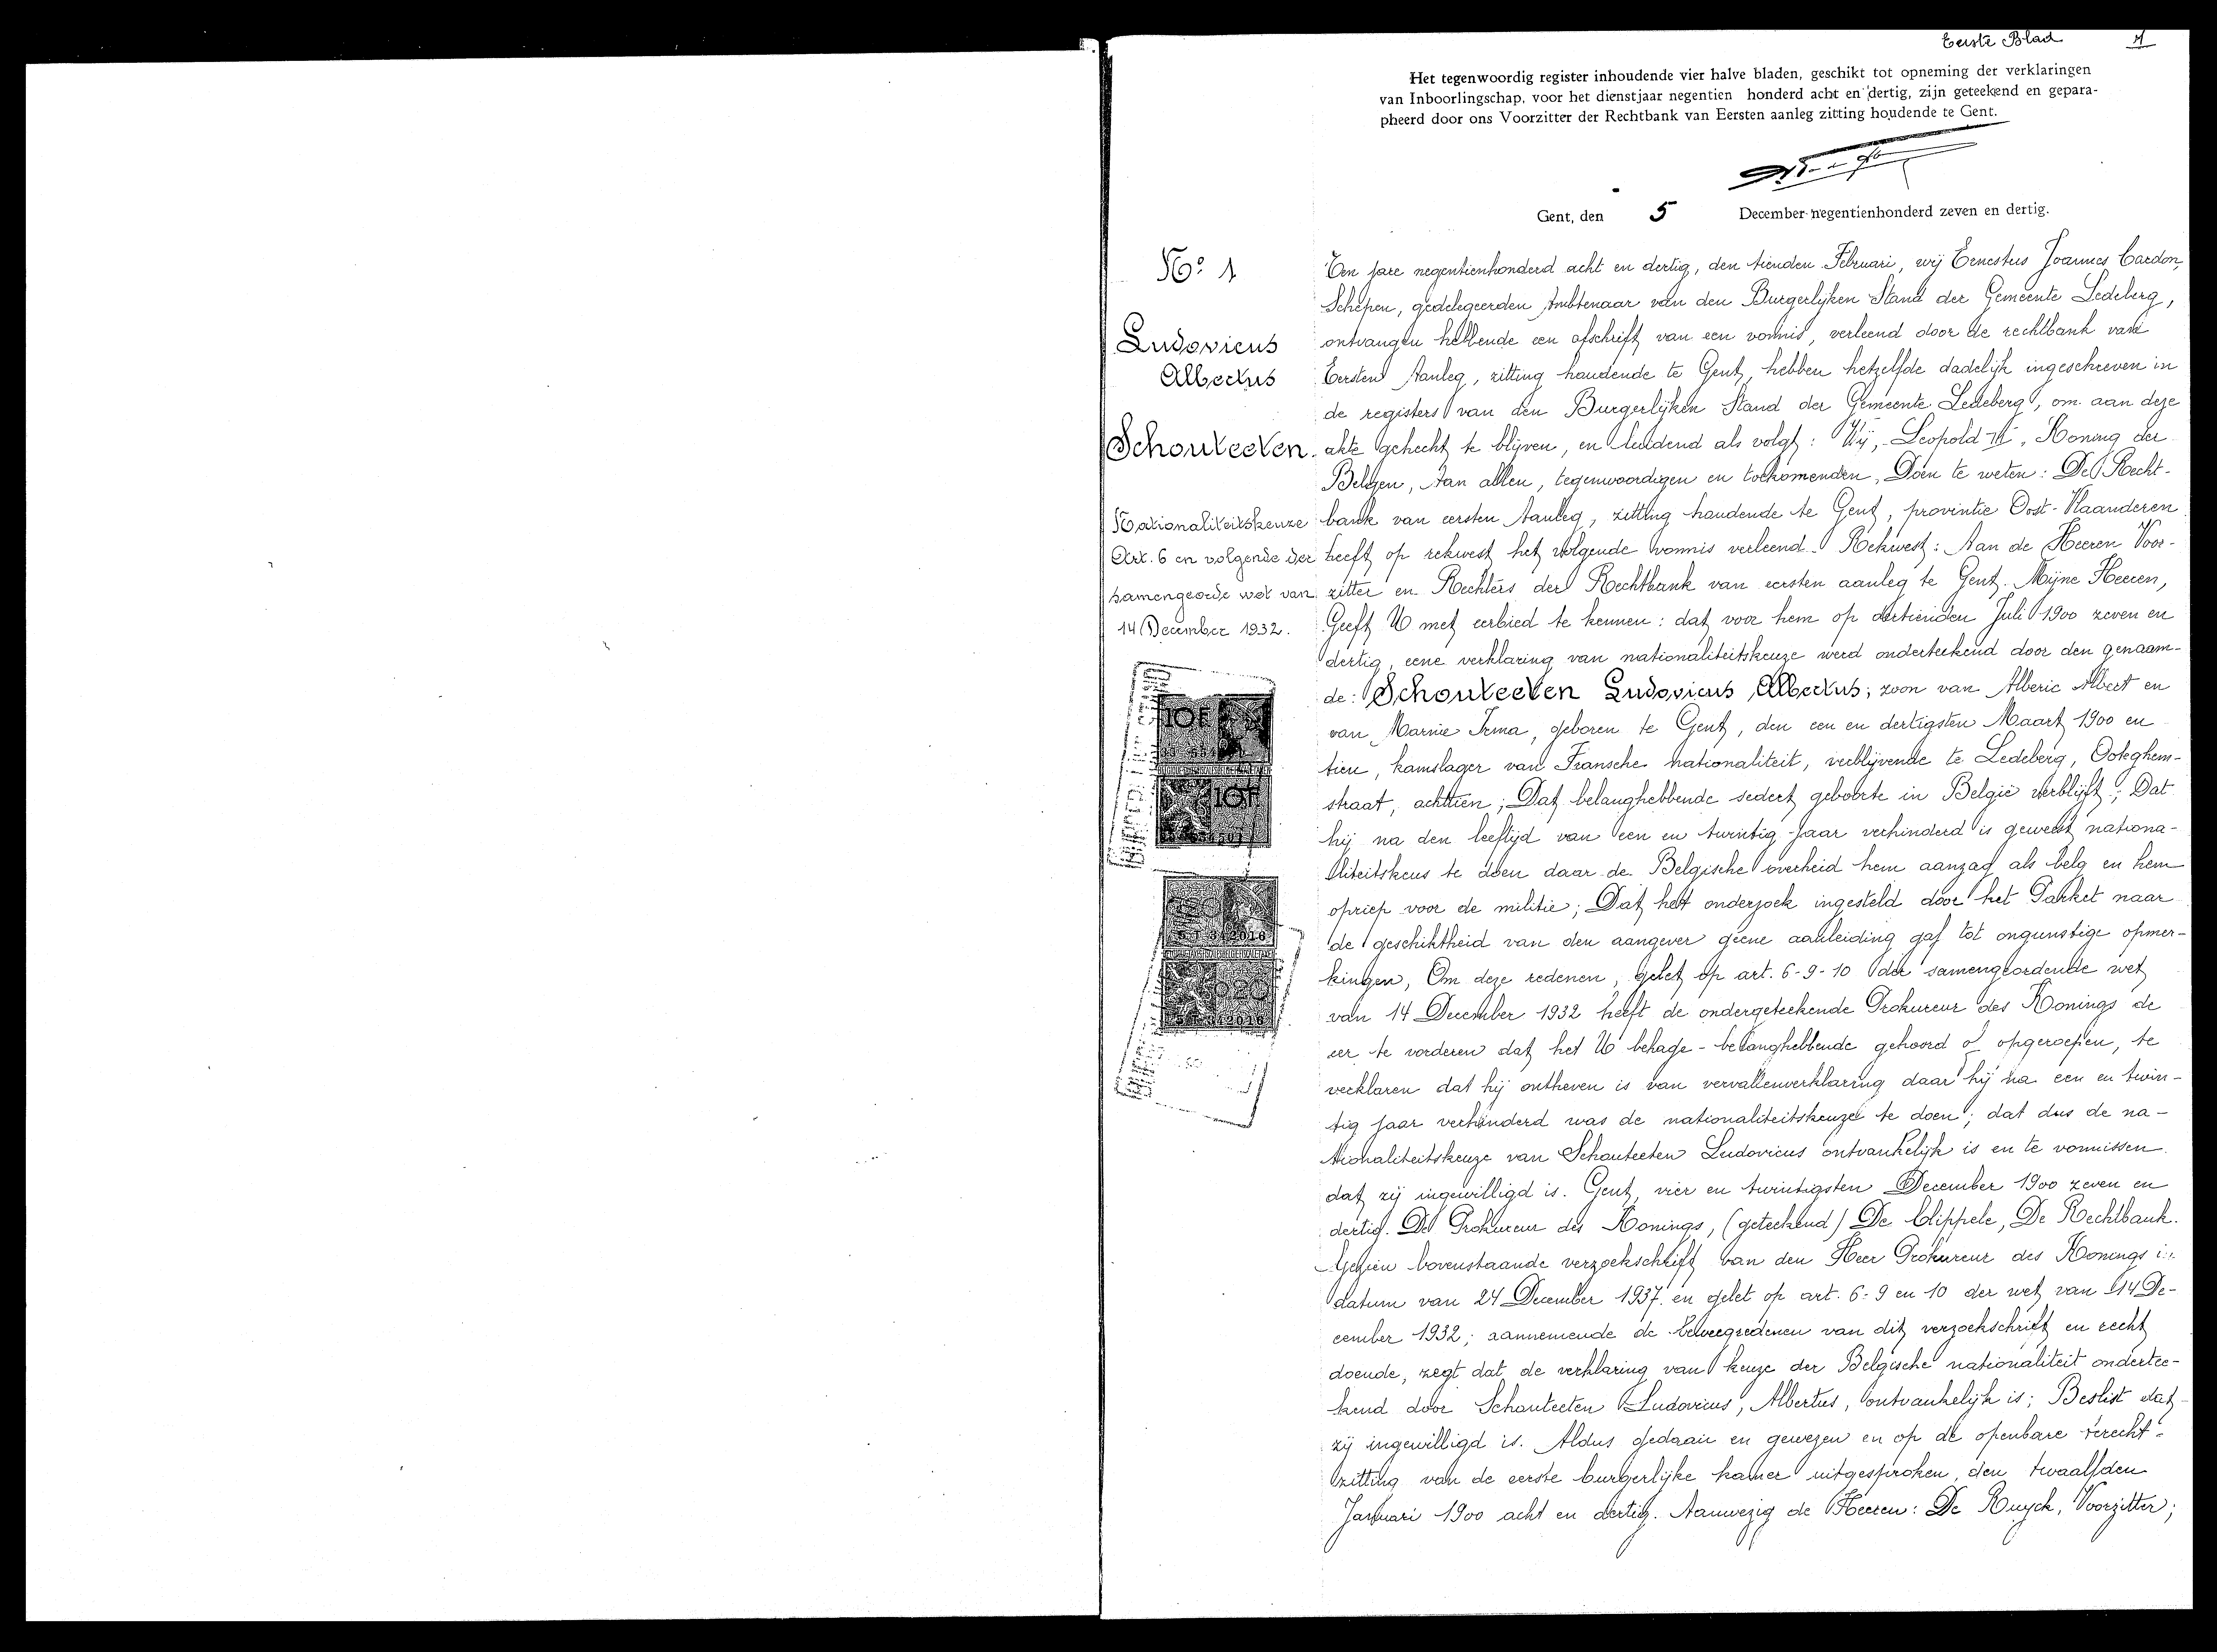 Eerste Blad 1
Het tegenwoordig register inhoudende vier halve bladen, geschikt tot opneming der verklaringen
van Inboorlingschap, voor het dienstjaar negentien honderd acht en dertig, zijn geteekend en gepara-
pheerd door ons Voorzitter der Rechtbank van Eersten aanleg zitting houdende te Gent.
Gent, den 5 December negentienhonderd zeven en dertig.
No 1
Ludovicus
Albertus
Schouteeten.
Nationaliteitskeuze
Art. 6 en volgende der
samengeorde wet van
14 December 1932.
10F
10F
5 T 342016
020
5 T 342016
Ten jare negentienhonderd acht en dertig, den tienden Februari, wij Ernestus Joannes Cardon,
Schepen, gedelegeerden Ambtenaar van den Burgerlijken Stand der Gemeente Ledeberg,
ontvangen hebbende een afschrift van een vonnis, verleend door de rechtbank van
Eersten Aanleg, zitting houdende te Gent, hebben hetzelfde dadelijk ingeschreven in
de registers van den Burgerlijken Stand der Gemeente Ledeberg, om aan deze
akte gehecht te blijven, en luidend als volgt: Wij, Leopold III, Koning der
Belgen, Aan allen, tegenwoordigen en toekomenden, Doen te weten: De Recht-
bank van eersten Aanleg, zitting houdende te Gent, provintie Oost-Vlaanderen
heeft op rekwest het volgende vonnis verleend. Rekwest: Aan de Heeren Voor-
zitter en Rechters der Rechtbank van eersten aanleg te Gent. Mijne Heeren,
Geeft U met eerbied te kennen: dat voor hem op dertienden Juli 1900 zeven en
dertig, eene verklaring van nationaliteitskeuze werd onderteekend door den genaam-
de: Schouteeten Ludovicus Albertus; zoon van Alberic Albert en
van Marnie Irma, geboren te Gent, den een en dertigsten Maart 1900 en
tien, kamslager van Fransche nationaliteit, verblijvende te Ledeberg, Ooteghem-
straat, achttien; Dat belanghebbende sedert geboorte in België verblijft; Dat
hij na den leeftijd van een en twintig jaar verhinderd is geweest nationa-
liteitskeus te doen daar de Belgische overheid hem aanzag als belg en hem
opriep voor de militie; Dat het onderzoek ingesteld door het Parket naar
de geschiktheid van den aangever geene aanleiding gaf tot ongunstige opmer-
kingen, Om deze redenen, gelet op art. 6-9-10 der samengeordende wet
van 14 December 1932 heeft de ondergeteekende Prokureur des Konings de
eer te vorderen dat het U behage - belanghebbende gehoord of opgeroepen, te
verklaren dat hij ontheven is van vervallenverklaring daar hij na een en twin-
tig jaar verhinderd was de nationaliteitskeuze te doen; dat dus de na-
tionaliteitskeuze van Schouteeten Ludovicus ontvankelijk is en te vonnissen
dat zij ingewilligd is. Gent, vier en twintigsten December 1900 zeven en
dertig. De Prokureur des Konings, (geteekend) De Clippele, De Rechtbank.
Gezien bovenstaande verzoekschrift van den Heer Prokureur des Konings in
datum van 24 December 1937 en gelet op art. 6-9 en 10 der wet van 14 De-
cember 1932; aannemende de beweegredenen van dit verzoekschrift en recht
doende, zegt dat de verklaring van keuze der Belgische nationaliteit ondertee-
kend door Schouteeten Ludovicus, Albertus, ontvankelijk is; Beslist dat
zij ingewilligd is. Aldus gedaan en gewezen en op de openbare terecht-
zitting van de eerste burgerlijke kamer uitgesproken, den twaalfden
Januari 1900 acht en dertig. Aanwezig de Heeren: De Ruyck, Voorzitter;